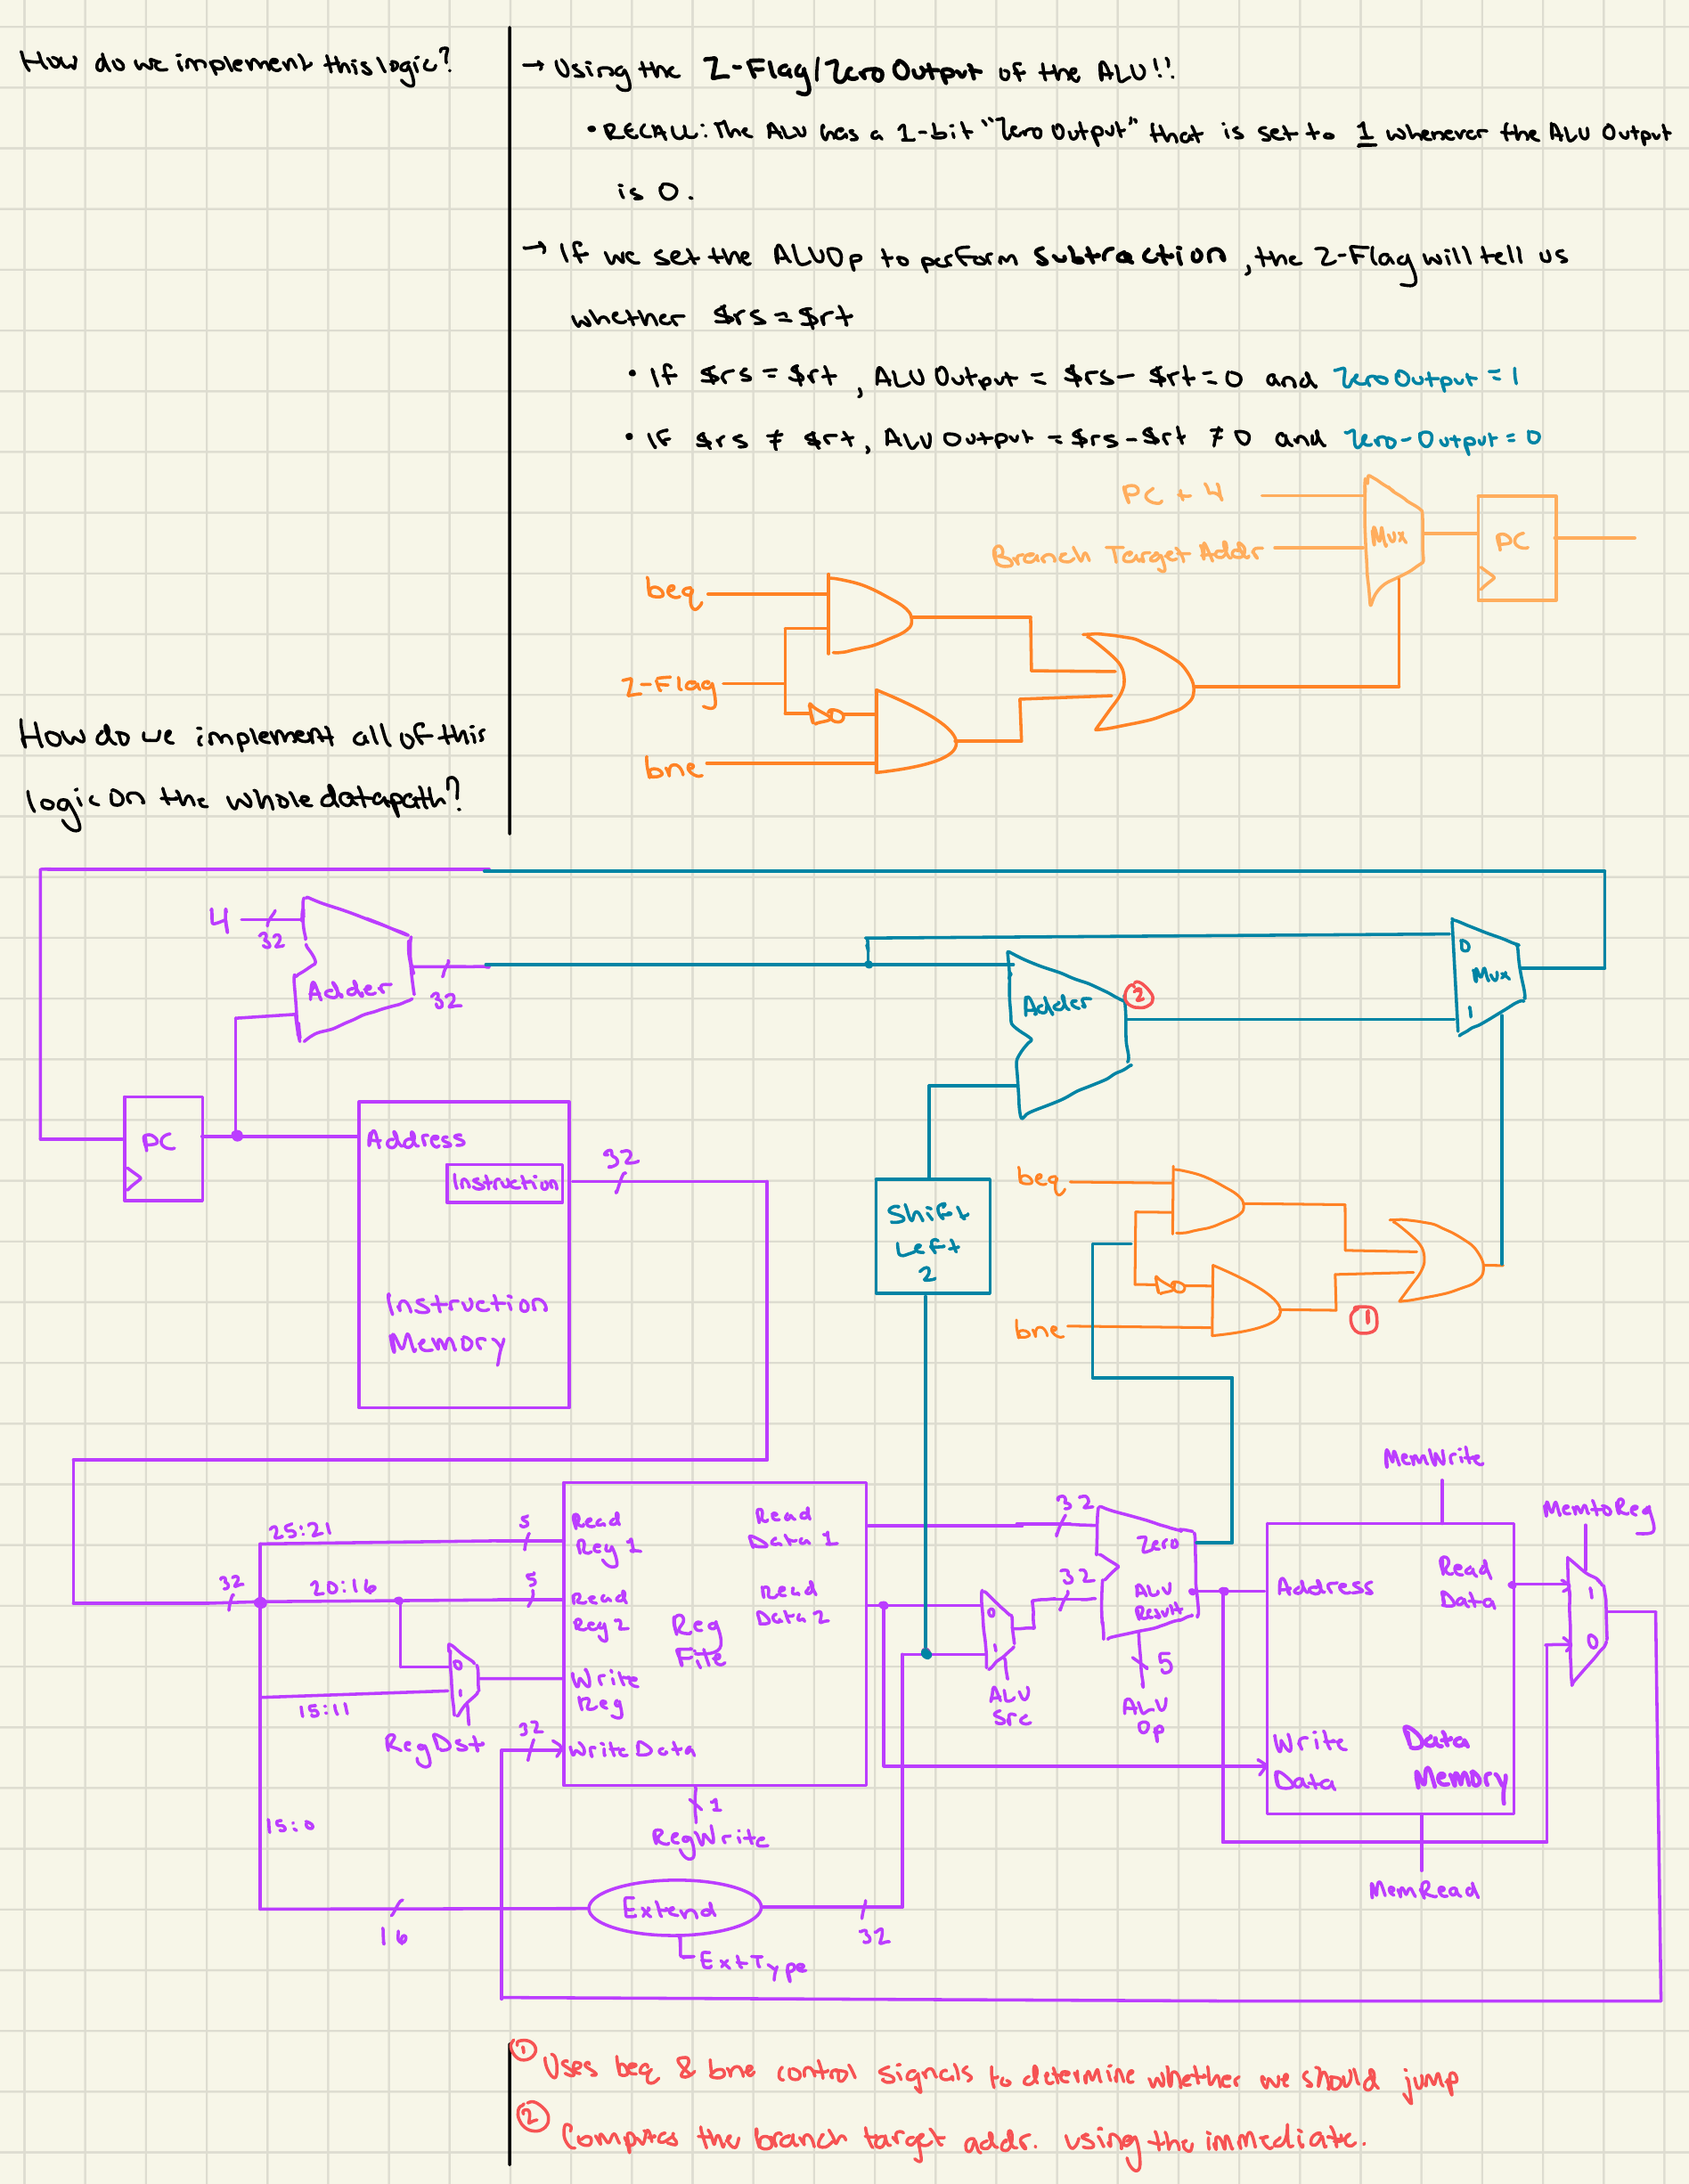 How do we implement this logic?
→ Using the Z-Flag/Zero Output of the ALU!!
• RECALL: The ALU has a 1-bit "Zero Output" that is set to 1 whenever the ALU Output
is 0.
→ If we set the ALUOp to perform subtraction, the Z-Flag will tell us
whether $rs = $rt
• If $rs = $rt, ALU Output = $rs - $rt = 0 and Zero Output = 1
• If $rs ≠ $rt, ALU Output = $rs - $rt ≠ 0 and Zero-Output = 0
PC + 4
Branch Target Addr
Mux
PC
beq
Z-Flag
bne
How do we implement all of this
logic on the whole datapath?
4
32
Adder
32
Adder
2
0
Mux
1
PC
Address
Instruction
32
Instruction
Memory
Shift
Left
2
beq
bne
1
MemWrite
MemtoReg
25:21
5
Read
Reg 1
Read
Data 1
32
Zero
32
20:16
5
Read
Reg 2
Read
Data 2
Reg
File
0
1
32
ALU
Result
Address
Read
Data
1
0
0
1
Write
Reg
15:11
RegDst
32
Write Data
ALU
Src
5
ALU
Op
Write
Data
Data
Memory
15:0
1
RegWrite
MemRead
16
Extend
32
ExtType
① Uses beq & bne control signals to determine whether we should jump
② Computes the branch target addr. using the immediate.